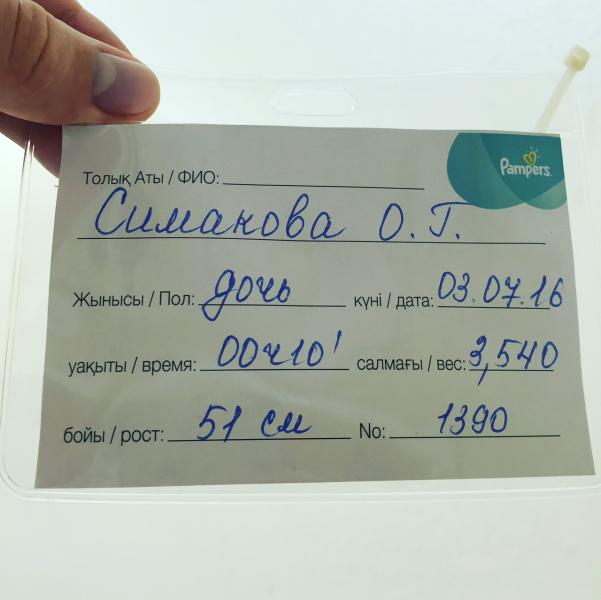 Pampers
Толық Аты / ФИО:
Симакова О. Г.
Жынысы / Пол: дочь күні / дата: 03.07.16
уақыты / время: 00ч10' салмағы / вес: 3,540
бойы / рост: 51 см No: 1390